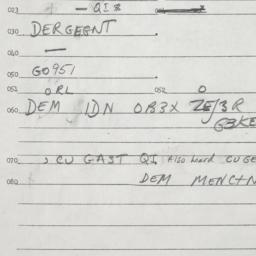 023 + — QI8
030 DERGEENT
040 —
050 GO951
051 ORL 052 O
060 DEM IDN OB3X ZE/3R
G3KE
070 , CU GAST QI Also heard CUGE
080 DEM MENCTN